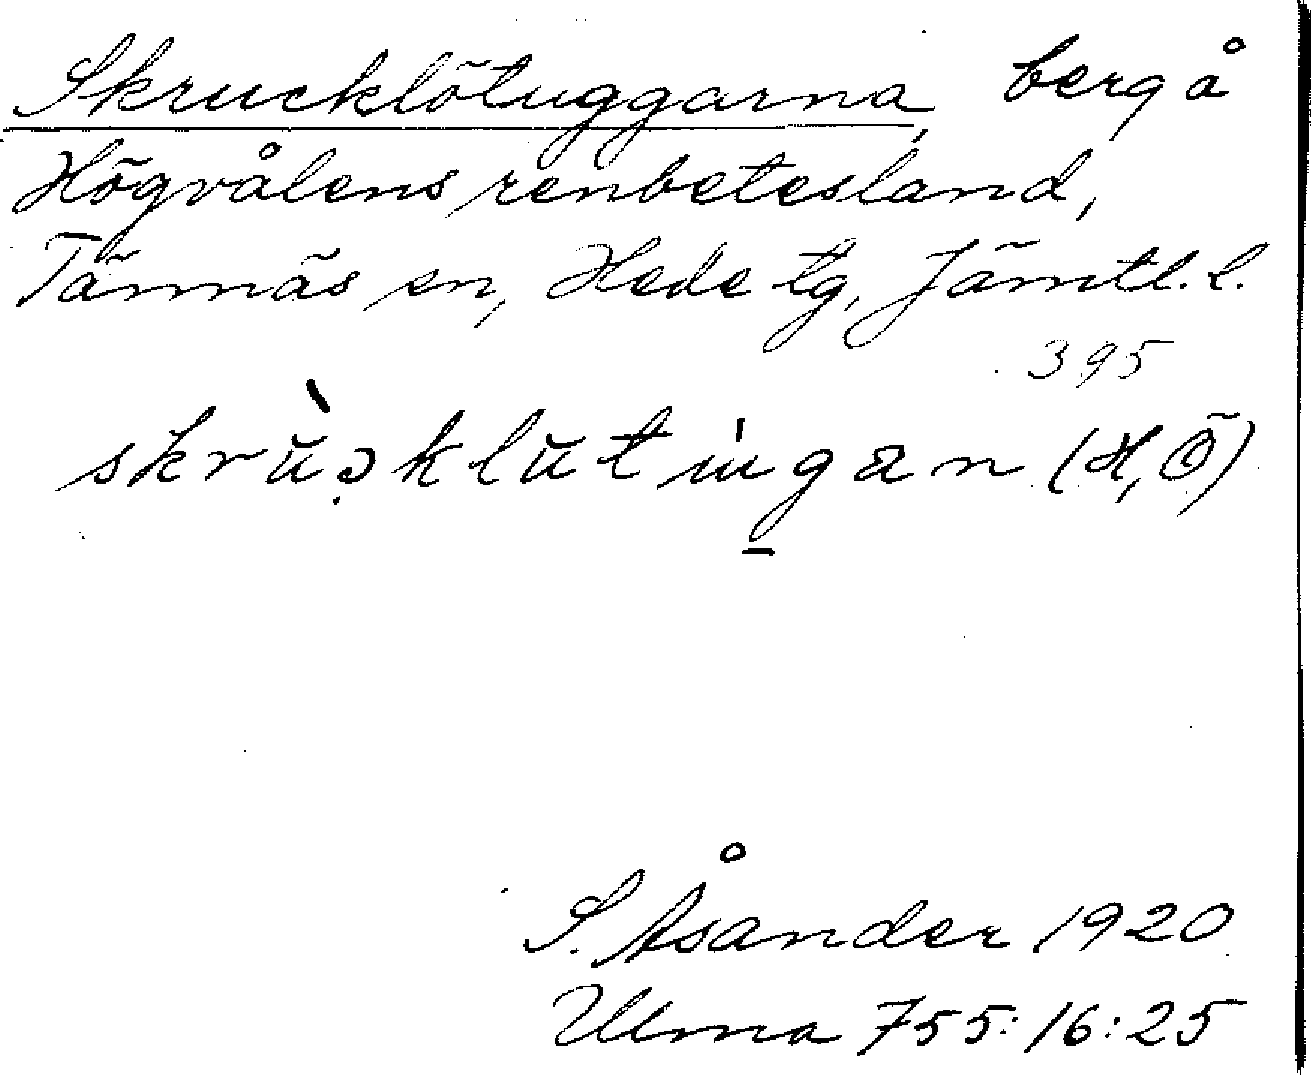 Skrucklötuggarna, berg å
Högvålens renbetesland,
Tännäs sn, Hede tg, Jämtl. l.
395
(H, Ö)
S. Åsander 1920
Ulma 755:16:25